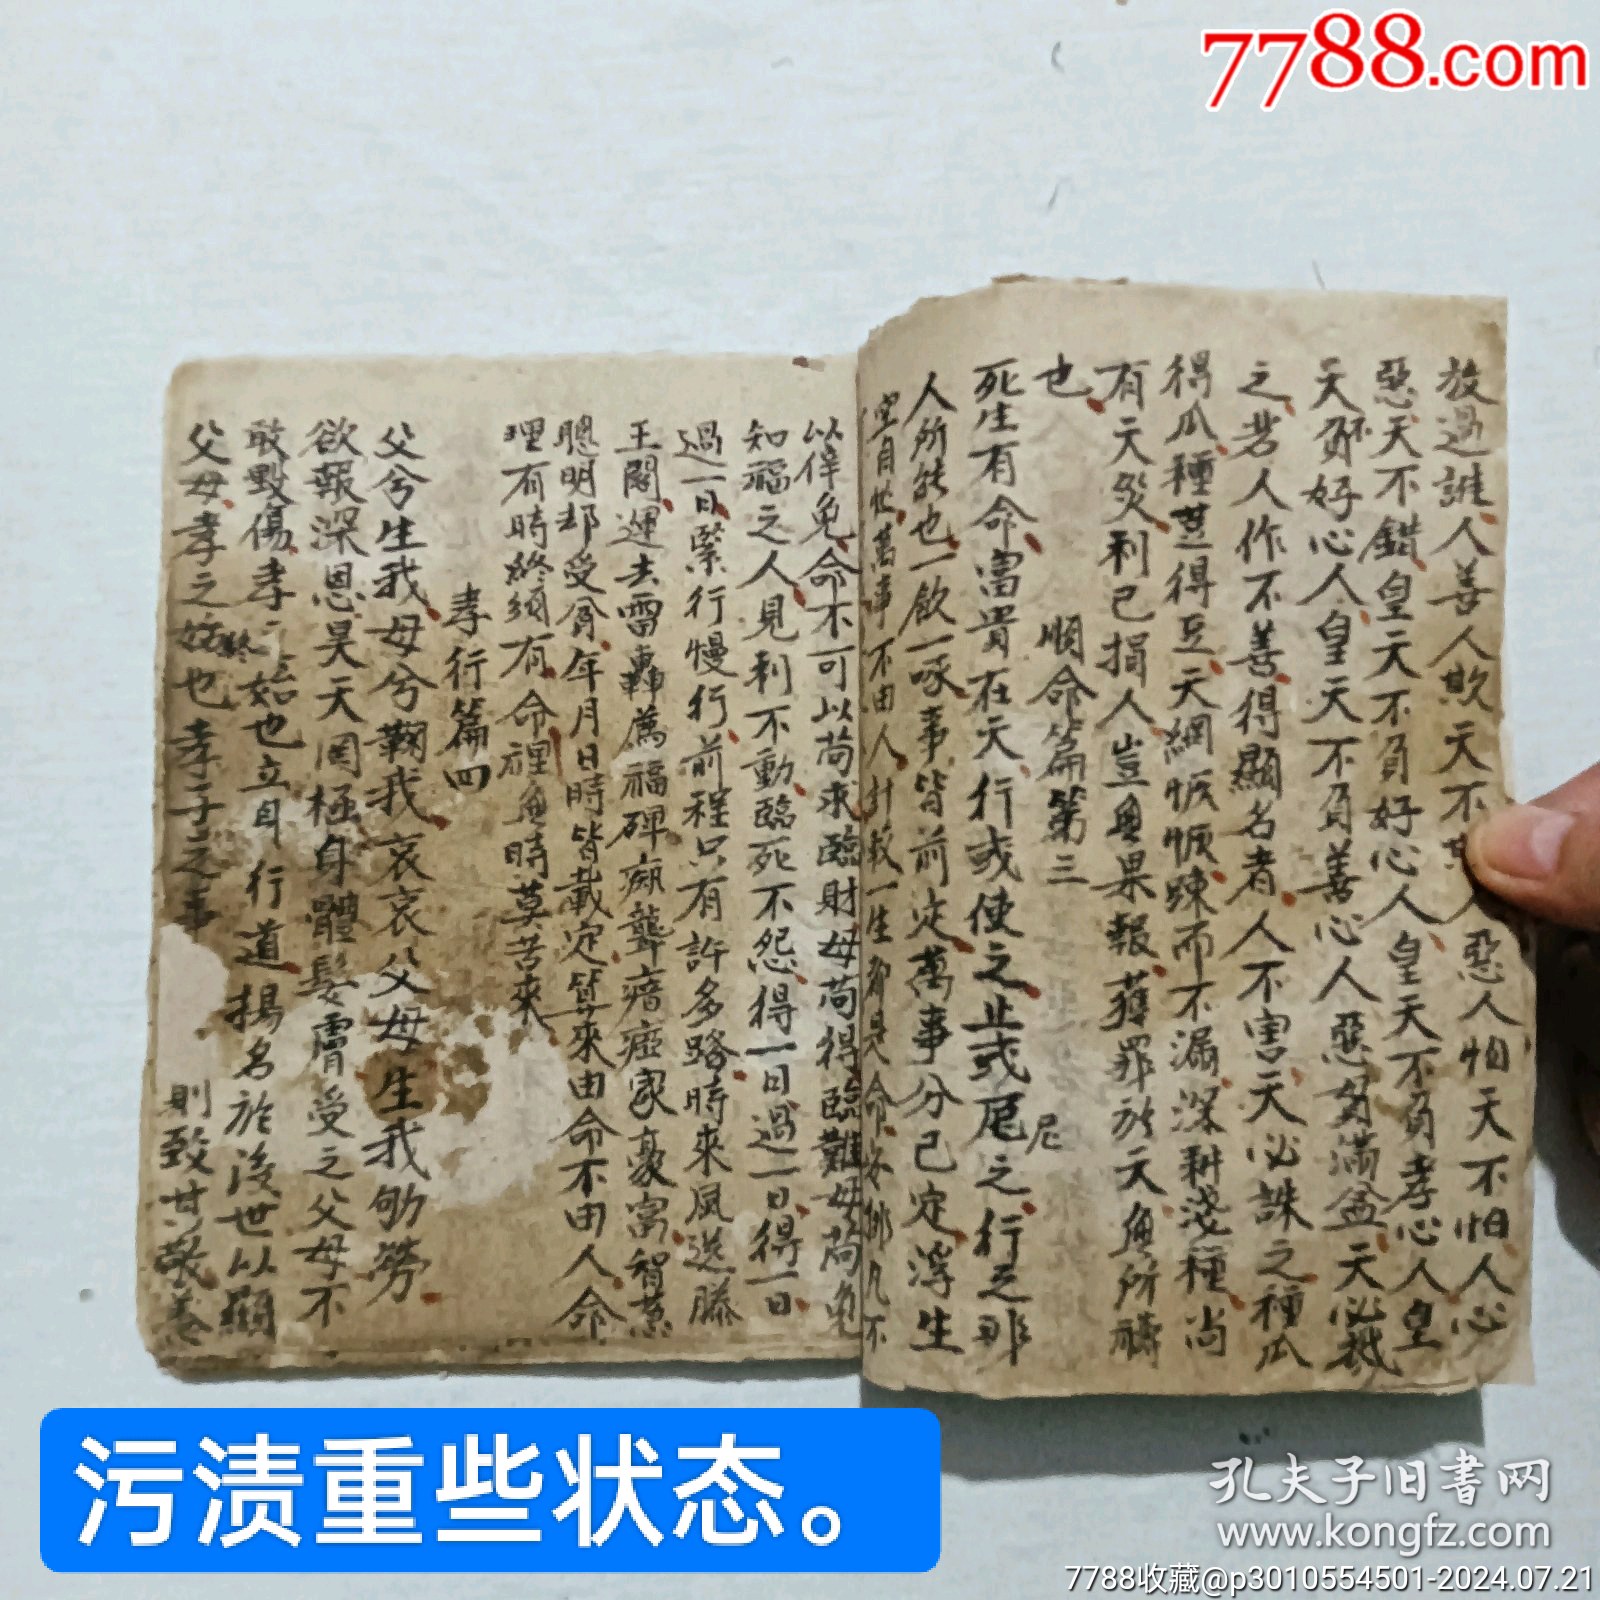 7788.com
放過誰人善人欺天不
人惡人怕天不怕人心
惡天不錯皇天不負好心人皇天不負孝心人皇
天不負好心人皇天不負善心人惡貫滿盈天必
之若人作不善得顯名者人不害天必誅之種瓜
得瓜種荳得豆天綱恢恢踈而不漏深耕淺種尚
有天災利己損人豈無果報獲罪於天無所禱
也
順命篇第三
尼
死生有命富貴在天行或使之止或尼之行止非
人所能也一飲一啄事皆前定萬事分已定浮生
空自忙萬事不由人計較一生都是命安排凡不
以倖免命不可以苟求臨財毋苟得臨難毋苟免
知福之人見利不動臨死不怨得一日過一日得一日
過一日緊行慢行前程只有許多路時來風送滕
王閣運去雷轟薦福碑癡聾瘖瘂家豪富智慧
聰明却受貧年月日時皆載定算來由命不由人命
理有時終須有命裡無時莫苦來
孝行篇四
父兮生我母兮鞠我哀哀父母生我劬勞
欲報深恩昊天罔極身體髮膚受之父母不
敢毀傷孝之始也立身行道揚名於後世以顯
父母孝之終也孝子之事
則致其
污渍重些状态。
孔夫子旧书网
www.kongfz.com
7788收藏@p3010554501-2024.07.21